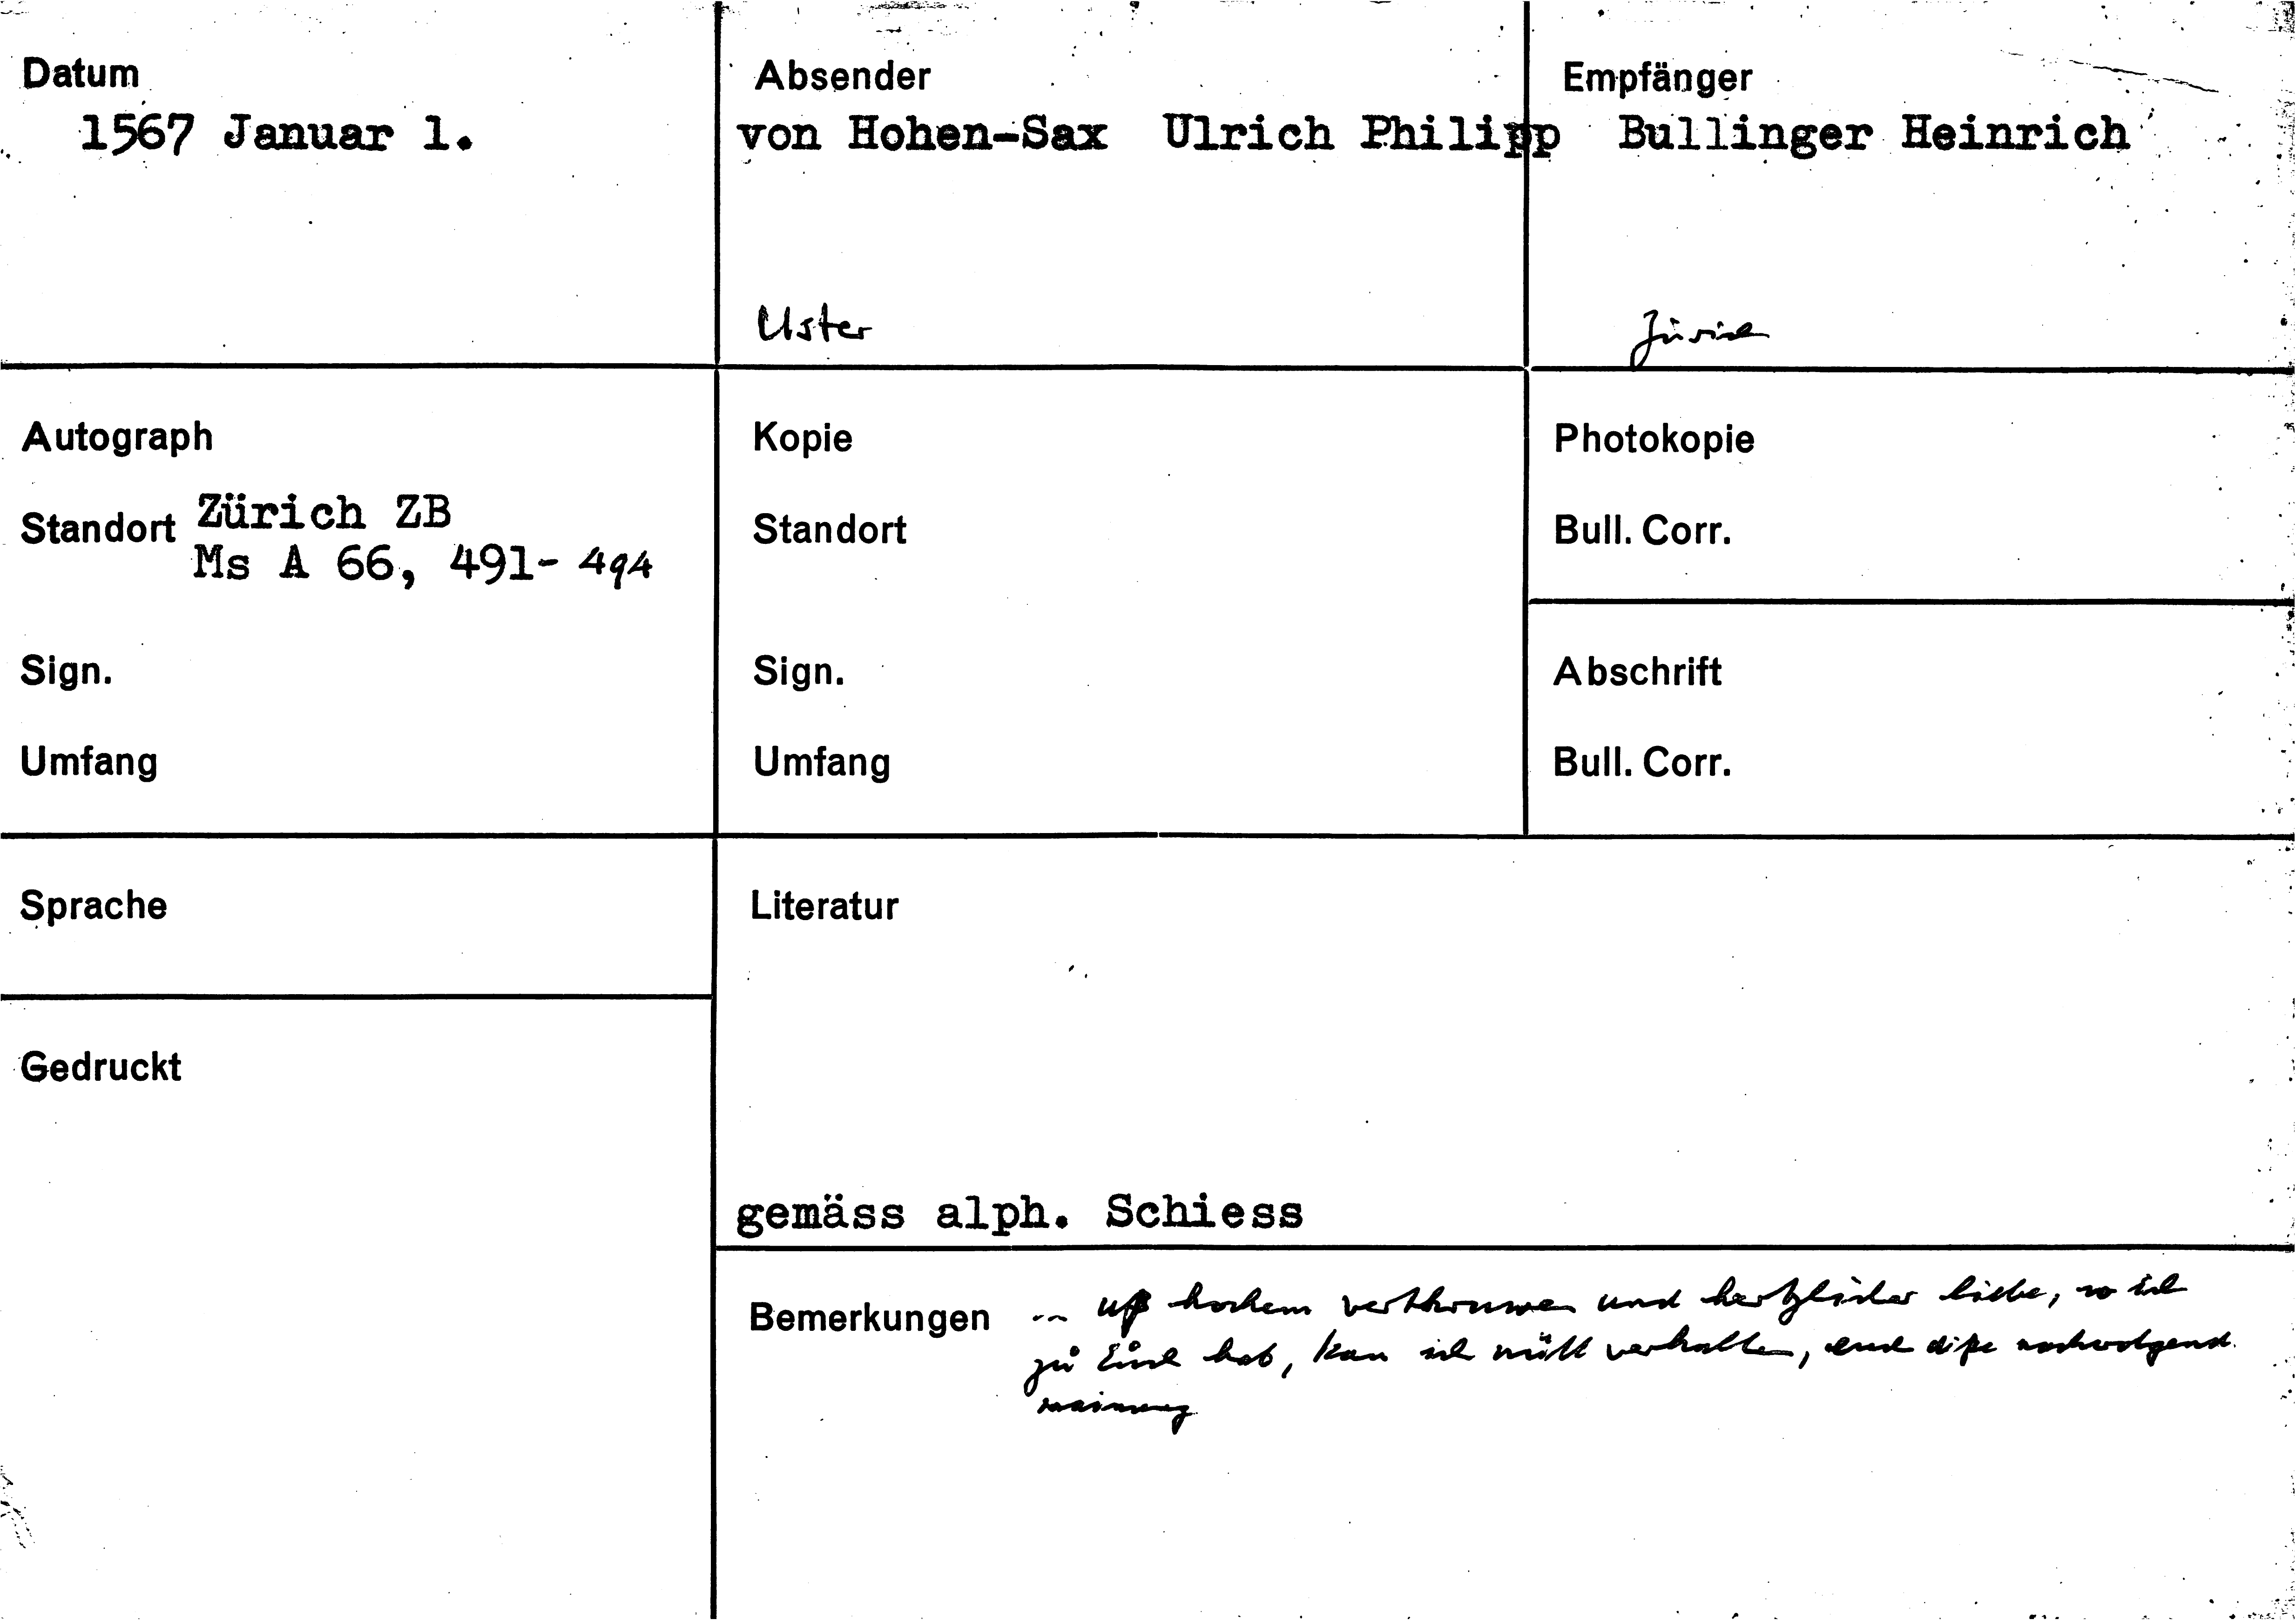 Datum
1567 Januar 1.
Absender
von Hohen-Sax Ulrich Philipp
Uster
Empfänger
Bullinger Heinrich
Zürich
Autograph
Standort Zürich ZB
Ms A 66, 491-494
Sign.
Umfang
Kopie
Standort
Sign.
Umfang
Photokopie
Bull. Corr.
Abschrift
Bull. Corr.
Sprache
Literatur
gemäss alph. Schiess
Gedruckt
Bemerkungen ... uß hochem verthruwen und hertzlicher liebe, so ich
zů Eůch hab, kan ich nütt verhalten, euch diße nachvolgend
mainung